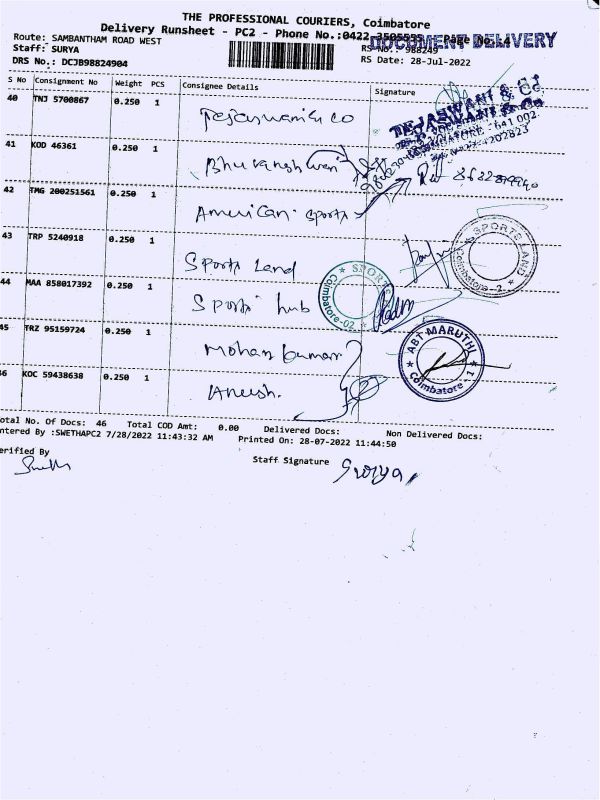 THE PROFESSIONAL COURIERS, Coimbatore
Delivery Runsheet - PC2 - Phone No.:0422 3505555 Page No.:4
DOCUMENT DELIVERY
Route: SAMBANTHAM ROAD WEST RS No.: 988249
Staff: SURYA RS Date: 28-Jul-2022
DRS No.: DCJB98824904
S No Consignment No Weight PCS Consignee Details Signature
40 TNJ 5700867 0.250 1 Tejaswani & Co
TEJASWANI & Co
41 KOD 46361 0.250 1 Bhuvaneshwari
42 TMG 200251561 0.250 1 American sports
43 TRP 5240918 0.250 1 Sports Land
SPORTS LAND
Coimbatore-2
44 MAA 858017392 0.250 1 Sports hub
SPORTS
Coimbatore-02
45 TRZ 95159724 0.250 1 Mohan kumar
ABT MARUTHI
Coimbatore - 1
46 KOC 59438638 0.250 1 Aneesh.
Total No. Of Docs: 46 Total COD Amt: 0.00 Delivered Docs: Non Delivered Docs:
ntered By :SWETHAPC2 7/28/2022 11:43:32 AM Printed On: 28-07-2022 11:44:50
erified By Staff Signature Surya